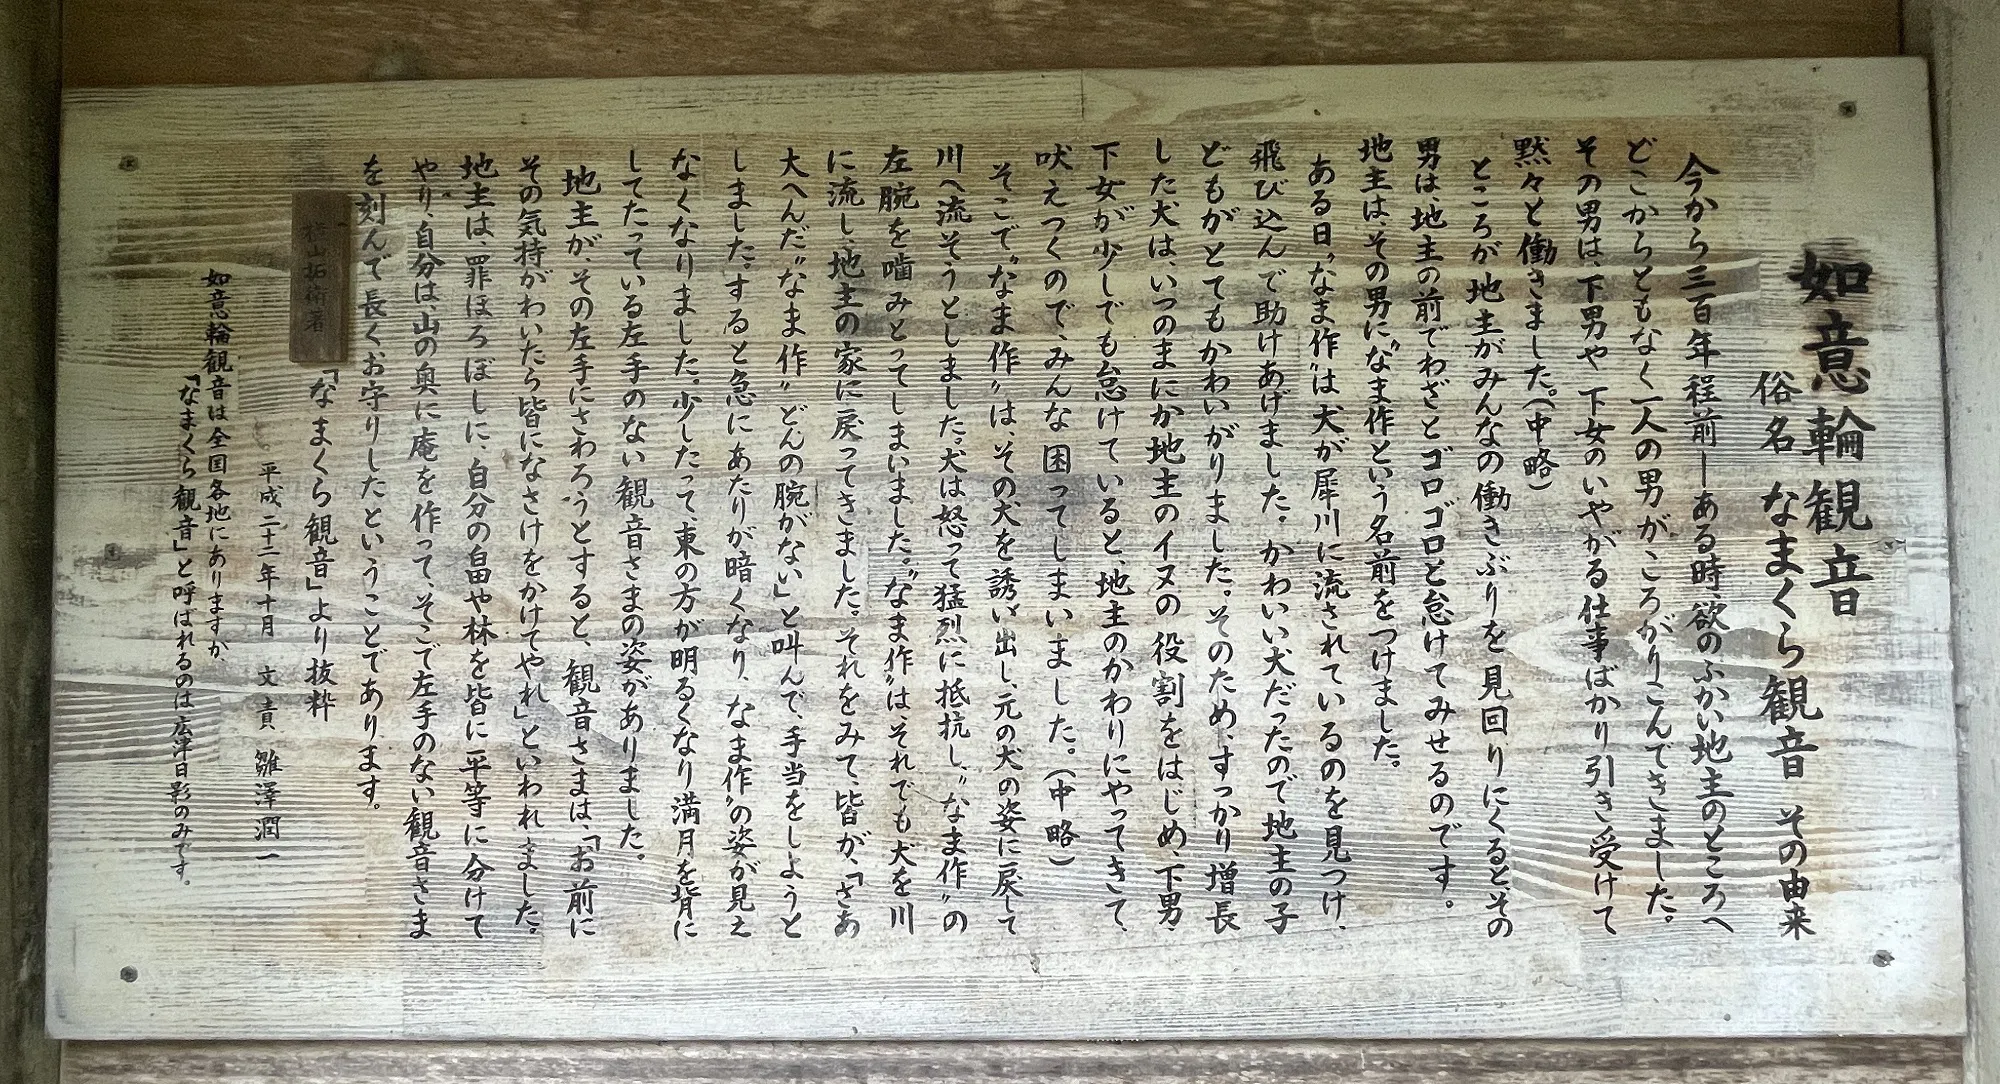 如意輪観音
俗名 なまくら観音 その由来
今から三百年程前―ある時、欲のふかい地主のところへ
どこからともなく一人の男がころがりこんできました。
その男は、下男や下女のいやがる仕事ばかり引き受けて
黙々と働きました。(中略)
ところが地主がみんなの働きぶりを見回りにくるとその
男は、地主の前でわざとゴロゴロと怠けてみせるのです。
地主は、その男に〝なま作という名前をつけました。
ある日〝なま作〟は犬が犀川に流されているのを見つけ、
飛び込んで助けあげました。かわいい犬だったので地主の子
どもがとてもかわいがりました。そのため、すっかり増長
した犬は、いつのまにか地主のイヌの役割をはじめ、下男、
下女が少しでも怠けていると、地主のかわりにやってきて、
吠えつくので、みんな困ってしまいました。(中略)
そこで〝なま作〟は、その犬を誘い出し、元の犬の姿に戻して
川へ流そうとしました。犬は怒って猛烈に抵抗し、〝なま作〟の
左腕を噛みとってしまいました。〝なま作〟は、それでも犬を川
に流し、地主の家に戻ってきました。それをみて、皆が、「さあ
大へんだ〝なま作〟どんの腕がない」と叫んで、手当をしようと
しました。すると急にあたりが暗くなり、なま作〟の姿が見え
なくなりました。少したって東の方が明るくなり満月を背に
してたっている左手のない観音さまの姿がありました。
地主が、その左手にさわろうとすると、観音さまは、「お前に
その気持がわいたら皆になさけをかけてやれ」といわれました。
地主は、罪ほろぼしに、自分の畠や林を皆に平等に分けて
やり、自分は、山の奥に庵を作って、そこで左手のない観音さま
を刻んで長くお守りしたということであります。
山拓術著
「なまくら観音」より抜粋
平成二十二年十月 文責 雛澤潤一
如意輪観音は全国各地にありますが、
「なまくら観音」と呼ばれるのは広津日影のみです。